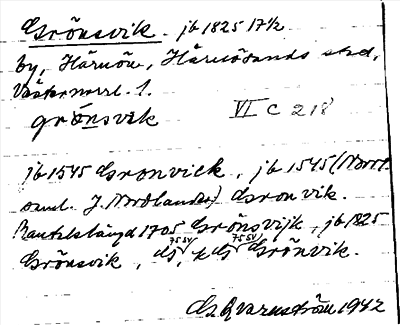 Grönsvik. jb 1825 17½
by, Härnön, Härnösands stad,
Västernorrl. l.
grönsvik VI C 218
jb 1545 Gronvick, jb 1545 (Norrl.
saml. J. Nordlander) Gronvik.
Mantalslängd 1705 Grönsvijk, jb 1825
Grönsvik, 75 SV 75 SV Grönvik.
Qvarnström 1942